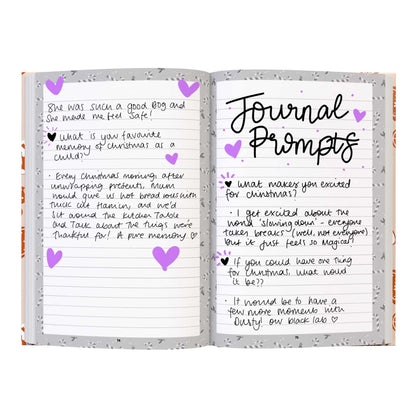 She was such a good Dog and
She made me feel safe!
What is your favourite
memory of Christmas as a
child?
· Every Christmas morning after
unwrapping presents, Mum
would give us hot bread rolls with
thick cut Hamin, and we'd
sit around the kitchen table
and talk about the things we're
thankful for! A pure memory ♡
Journal
Prompts
What makes you excited
for Christmas?
· I get excited about the
world "slowing down" - everyone
takes breaks (well, not everyone)
but it just feels so magical!
If you could have one thing
for Christmas, what would
it be??
· It would be to have a
few more moments with
Dusty! our black lab ♡